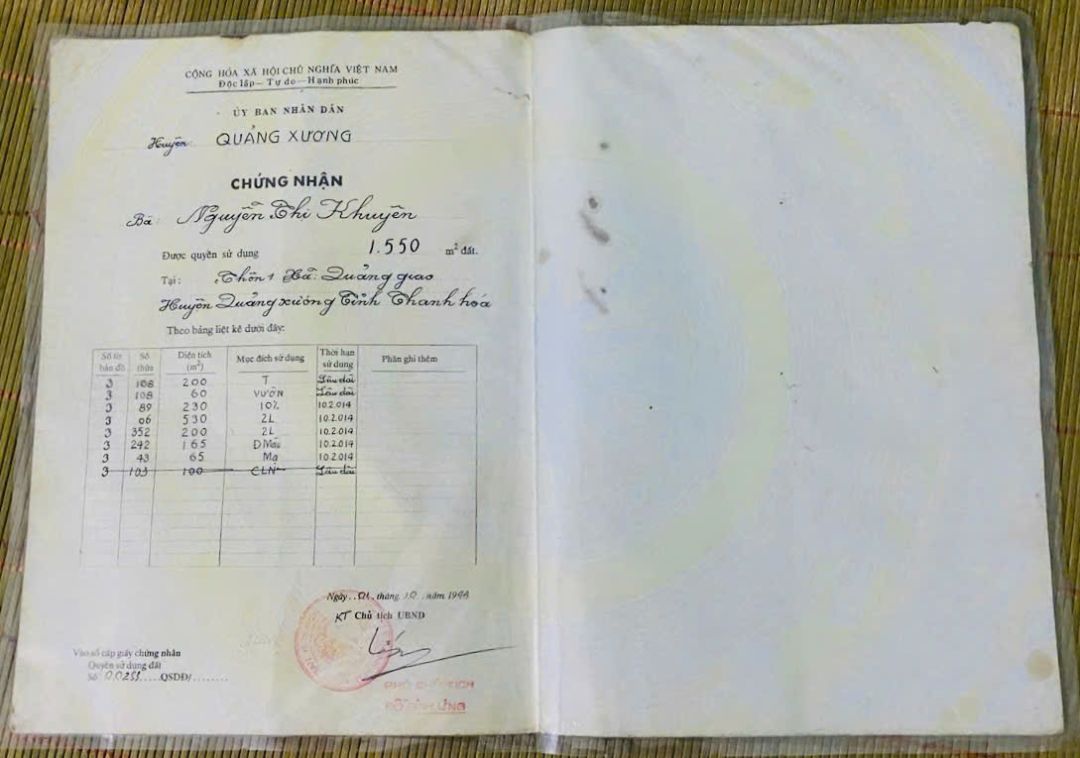 CỘNG HÒA XÃ HỘI CHỦ NGHĨA VIỆT NAM
Độc lập — Tự do — Hạnh phúc
ỦY BAN NHÂN DÂN
Huyện: QUẢNG XƯƠNG
CHỨNG NHẬN
Bà: Nguyễn Thị Khuyên
Được quyền sử dụng 1.550 m² đất.
Tại: Thôn 1 Xã: Quảng giao
Huyện Quảng xương Tỉnh Thanh hóa
Theo bảng liệt kê dưới đây:
Số tờ bản đồ Số thửa Diện tích (m²) Mục đích sử dụng Thời hạn sử dụng Phần ghi thêm
3 108 200 T Lâu dài
3 108 60 VƯỜN Lâu dài
3 89 230 10% 10.2.014
3 06 530 2L 10.2.014
3 352 200 2L 10.2.014
3 242 165 ĐMàu 10.2.014
3 43 65 Mạ 10.2.014
3 103 100 CLN Lâu dài
Ngày 01 tháng 10 năm 1994
KT Chủ tịch UBND
Vào sổ cấp giấy chứng nhận
Quyền sử dụng đất
Số 00251 QSDĐ/
PHÓ CHỦ TỊCH